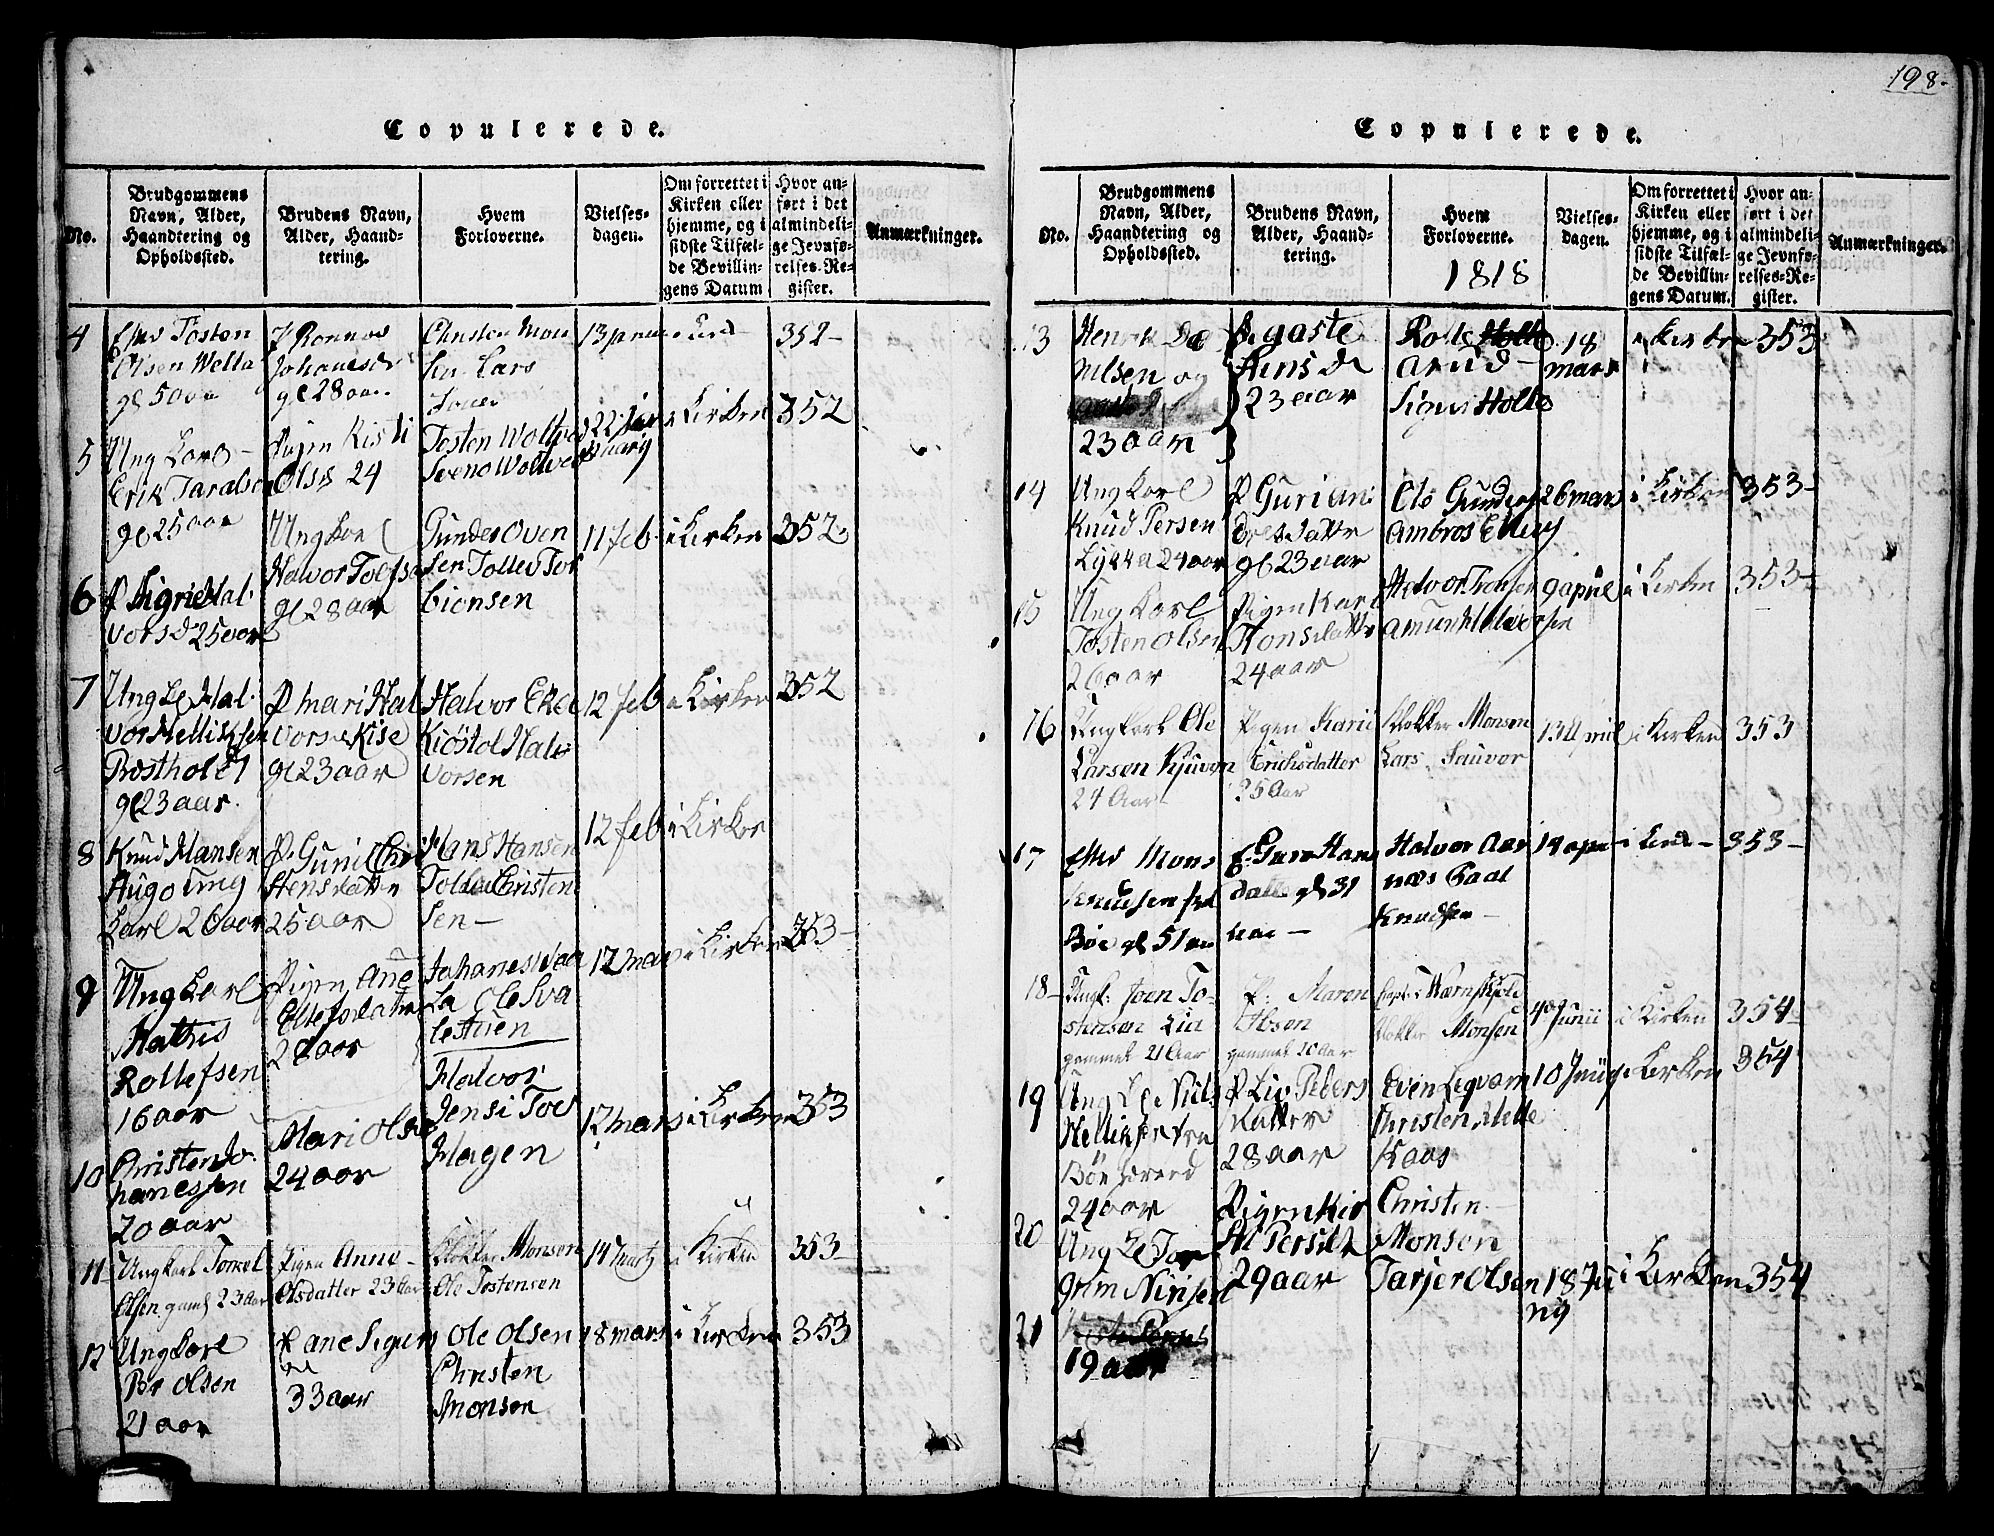 198.
Copulerede.
No.
Brudgommens
Navn, Alder,
Haandtering og
Opholdssted.
Brudens Navn,
Alder, Haand-
tering.
Hvem
Forloverne.
Vielses-
dagen.
Om forrettet i
Kirken eller
hjemme, og i
sidste Tilfæl-
de Bevillin-
gens Datum
Hvor an-
ført i det
almindeli-
ge Jevnfø-
relses-Re-
gister.
Anmærkninger.
4
Tosten
Olsen Wella
gl 50
P Ronnov
Johanesdr
gl 28 aar
Christen Mon
Sen Lars
352-
5
Ung karl
Erik Taralsen
gl 25 aar
Pigen Kisti
Olsd 24
Tosten Woltved
Svenowoltved
22
i Kirken
352
6
P Sigrie Hal-
vorsd 25 aar
Ung karl
Halvor Tolfsen
gl 28 aar
Gunder Oven
Sen Tollev Tor
bionsen
11 feb
i Kirken
352
7
Ung k Hal-
vor Kittilsen
Bostholet
gl 23 aar.
P mari Hal
vorsd Kise
gl 23 aar
Halvor Eke
Kiöstol Hal-
vorsen
12 feb
i Kirken
352
8
Knud Hansen
Hugo Ung
karl 26 aar
P. Guni Chri
Stensdatter
25 aar
Hans Hansen
Tollev Christen
Sen-
12 feb
i Kirken
353-
9
Ung karl
Mathis
Rollefsen
16 aar
Pigen Ane
28 aar
Johanes Vaa
La Ole Sva
lestuen
12 mars
i Kirken
10
Christen Jo-
hanessen
20 aar
Mari Olsd
24 aar
Halvor
Jensi Toes
Hagen
12 mars
i Kirken
353
11
Ungkarl Tomel
Olsen gaml 23 aar
Pigen Anne
Olsdatter 23 aar
Klokker Monsen
Ole Tostensen
14 Martz
i Kirken
353-
12
Ung karl
Per Olsen
21 aar
P ane Sigurs
33 aar
Ole Olsen
Christen
Monsen
18 mars
i Kirken
353
Copulerede.
No.
Brudgommens
Navn, Alder,
Haandtering og
Opholdssted.
Brudens Navn,
Alder, Haand-
tering.
Hvem
Forloverne.
1818
Vielses-
dagen.
Om forrettet i
Kirken eller
hjemme, og i
sidste Tilfæl-
de Bevillin-
gens Datum.
Hvor an-
ført i det
almindeli-
ge Jevnfø-
relses-Re-
gister.
Anmærkninger.
13
nilsen og
23 aar
P. gaste
23 aar
Rolle Holte
Sigur Holte
18
mars
i Kirken
353
14
Ung karl
Knud Persen
Lykka 24 aar
P Guri An
dresdatter
gl 23 aar
Ole Gunders
ambros Elley
26 mars
i Kirken
353-
15
Ung karl
Tosten Olsen
26 aar
Pigen Kari
Honsdatter
24 aar
Halvor Tronsen
amun Halvorsen
9 april
i Kirken
353-
16
Ungkarl Ole
Larsen Kjuven
24 Aar
Pigen Karie
Erichsdatter
25 Aar
Klokker Monsen
Lars Sauvor
13 April
i Kirken
353
17
Enkes Mons
Knudsen fra
Böe gl 51 aar
E. Guro Han
datter gl 31
aar -
Halvor Aar
næs Paal
Knudsen -
14 apr
353-
18-
Ungk: Joen To-
stensen Lia
gammel 21 Aar
P: Maren
Ibsen
gammel 20 Aar
Capt: Wærnskiold
Klokker Monsen
4de Junii
i Kirken
354-
19
Ung k Nils
Kettilsen fra
Böe
24 aar
P Liv Peders
Datter
28 aar
Even Leqvam
Christen Mette
Kaas
10 Junij
i Kirken
354
20
Ung k Tor
Grim Nirisen
Pigen Kir
Sti Persdt
29 aar
Christen
Monsen
Tarjer Olsen
18 Ju
nij
i Kirken
354
21
19 aar